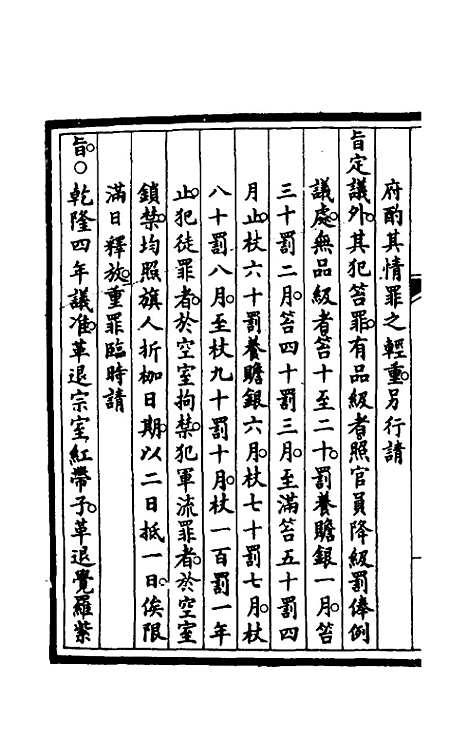 府酌其情罪之輕重。另行請
旨定議外。其犯笞罪。有品級者。照官員降級罰俸例
議處。無品級者。笞十至二十。罰養贍銀一月。笞
三十罰二月。笞四十罰三月。至滿笞五十罰四
月止。杖六十罰養贍銀六月。杖七十罰七月。杖
八十罰八月。至杖九十罰十月。杖一百罰一年
止。犯徒罪者。於空室拘禁。犯軍流罪者。於空室
鎖禁。均照旗人折枷日期。以二日抵一日。俟限
滿日釋放。重罪臨時請
旨。○乾隆四年議准。革退宗室紅帶子。革退覺羅紫